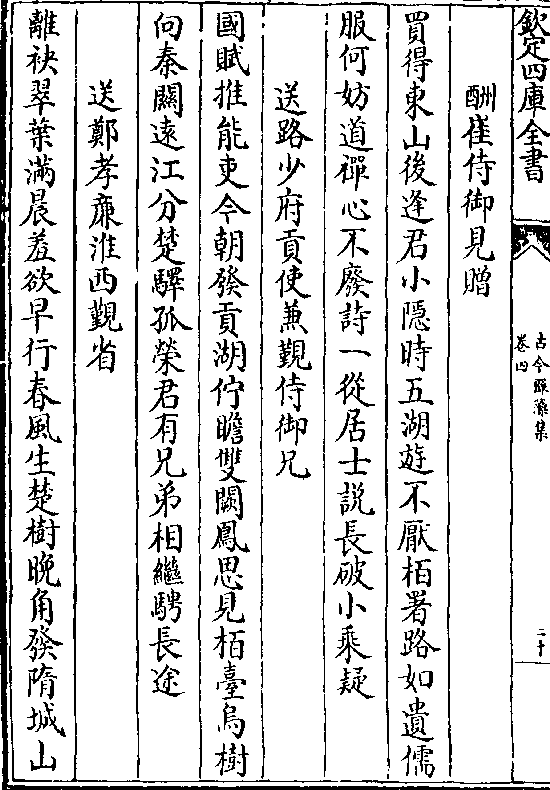 欽定四庫全書
古今禪藻集
卷四
二十
酬崔侍御見贈
買得東山後逢君小隠時五湖遊不厭栢署路如遺儒
服何妨道禪心不廢詩一從居士説長破小乗疑
送路少府貢使兼覲侍御兄
國賦推能吏今朝發貢湖佇瞻雙闕鳳思見栢臺烏樹
向秦關逺江分楚驛孤榮君有兄弟相繼騁長途
送鄭孝亷淮西覲省
離袂翠葉滿晨羞欲早行春風生楚樹晚角發隋城山